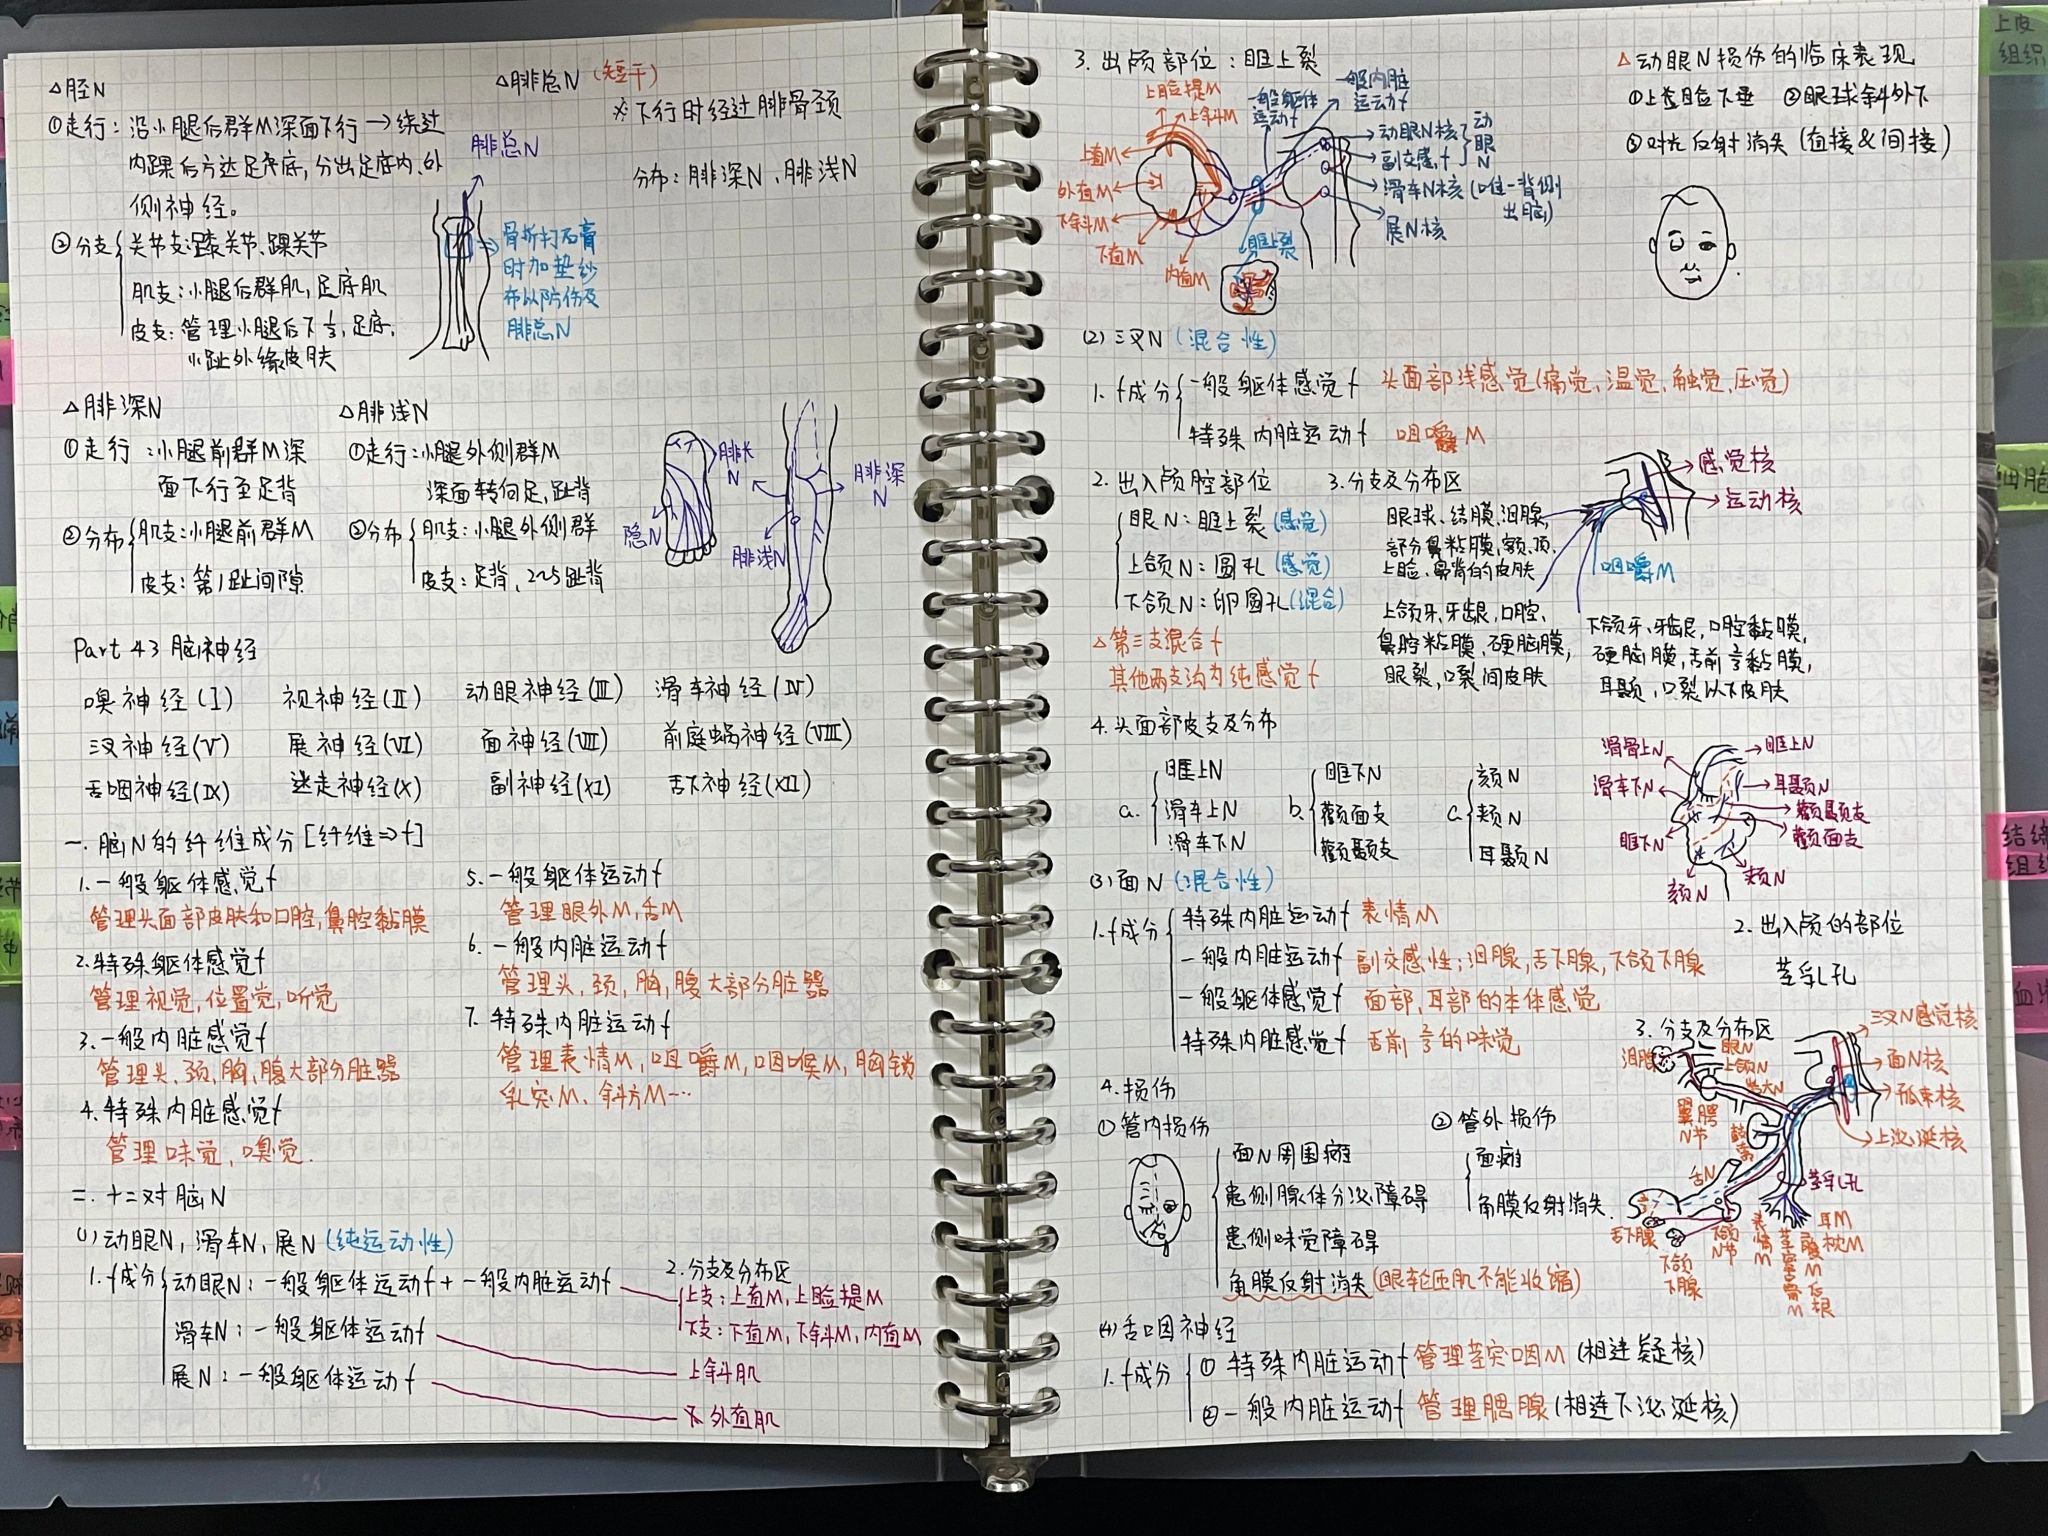 △胫N
①走行：沿小腿后群M深面下行→绕过
内踝后方达足底，分出足底内、外
侧神经。
②分支
关节支：膝关节、踝关节
肌支：小腿后群肌，足底肌
皮支：管理小腿后下½，足底，
小趾外缘皮肤
腓总N
骨折打石膏
时加垫纱
布以防伤及
腓总N
△腓总N（短干）
※下行时经过腓骨颈
分布：腓深N、腓浅N
△腓深N
①走行：小腿前群M深
面下行至足背
②分布
肌支：小腿前群M
皮支：第1趾间隙
△腓浅N
①走行：小腿外侧群M
深面转向足、趾背
②分布
肌支：小腿外侧群
皮支：足背，2~5趾背
隐N
N
腓浅N
腓深
N
Part 43 脑神经
嗅神经(I) 视神经(II) 动眼神经(III) 滑车神经(IV)
三叉神经(V) 展神经(VI) 面神经(VII) 前庭蜗神经(VIII)
舌咽神经(IX) 迷走神经(X) 副神经(XI) 舌下神经(XII)
一. 脑N的纤维成分[纤维⇒f]
1.一般躯体感觉f
管理头面部皮肤和口腔，鼻腔黏膜
2.特殊躯体感觉f
管理视觉，位置觉，听觉
3.一般内脏感觉f
管理头、颈，胸，腹大部分脏器
4.特殊内脏感觉f
管理味觉，嗅觉.
5.一般躯体运动f
管理眼外M，舌M
6.一般内脏运动f
管理头，颈，胸，腹大部分脏器
7.特殊内脏运动f
管理表情M，咀嚼M，咽喉M，胸锁
乳突M、斜方M…
二. 十二对脑N
(1)动眼N，滑车N，展N（纯运动性）
1.f成分
动眼N：一般躯体运动f+一般内脏运动f
滑车N：一般躯体运动f
展N：一般躯体运动f
2.分支及分布区
上支：上直M，上睑提M
下支：下直M，下斜M，内直M
上斜肌
外直肌
3.出颅部位：眶上裂
上睑提M
上斜M
上直M
外直M
下斜M
下直M
内直M
一般躯体
运动f
一般内脏
运动f
动眼N核
副交感f
动
眼
N
滑车N核（唯一背侧
出脑）
展N核
眶上裂
△动眼N损伤的临床表现
①上睑下垂 ②眼球斜外下
③对光反射消失（直接&间接）
(2)三叉N（混合性）
1.f成分
一般躯体感觉f 头面部浅感觉(痛觉，温觉，触觉，压觉)
特殊内脏运动f 咀嚼M
2.出入颅腔部位
眼N：眶上裂（感觉）
上颌N：圆孔（感觉）
下颌N：卵圆孔（混合）
△第三支混合f
其他两支均为纯感觉f
3.分支及分布区
感觉核
运动核
咀嚼M
眼球、结膜、泪腺，
部分鼻粘膜，额、顶、
上睑、鼻背的皮肤
上颌牙，牙龈，口腔、
鼻腔粘膜，硬脑膜，
眼裂，口裂间皮肤
下颌牙、牙龈，口腔黏膜，
硬脑膜，舌前⅔黏膜，
耳颞，口裂以下皮肤
4.头面部皮支及分布
a.
眶上N
滑车上N
滑车下N
b.
眶下N
颧面支
颧颞支
c.
颏N
颊N
耳颞N
滑车下N
眶下N
颏N
眶上N
耳颞N
颧颞支
颧面支
颊N
(3)面N（混合性）
1.f成分
特殊内脏运动f 表情M
一般内脏运动f 副交感性：泪腺，舌下腺，下颌下腺
一般躯体感觉f 面部，耳部的本体感觉
特殊内脏感觉f 舌前⅔的味觉
2.出入颅的部位
茎乳孔
3.分支及分布区
泪腺
眼N
上颌N
岩大N
翼腭
N节
鼓索
舌N
舌下腺
下颌
下腺
下颌
N节
三叉N感觉核
面N核
孤束核
上泌涎核
茎乳孔
表情M
耳M
枕M
4.损伤
①管内损伤
面N周围瘫
患侧腺体分泌障碍
患侧味觉障碍
角膜反射消失(眼轮匝肌不能收缩)
②管外损伤
面瘫
角膜反射消失.
(4)舌咽神经
1.f成分
①特殊内脏运动f 管理茎突咽M（相连疑核）
②一般内脏运动f 管理腮腺（相连下泌涎核）
上皮
组织
细胞